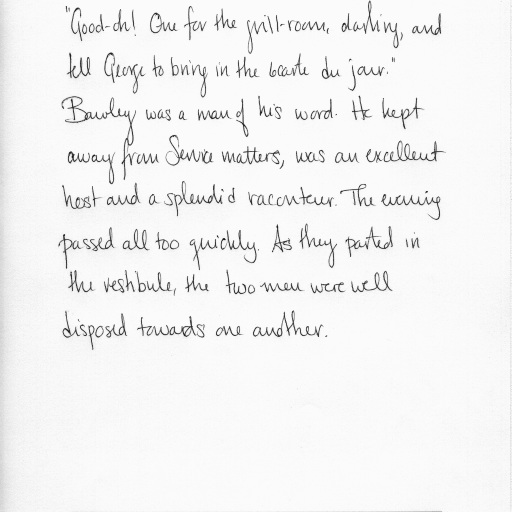 "Good-oh! One for the grill-room, darling, and
tell George to bring in the carte du jour."
Bawley was a man of his word. He kept
away from Service matters, was an excellent
host and a splendid raconteur. The evening
passed all too quickly. As they parted in
the vestibule, the two men were well
disposed towards one another.